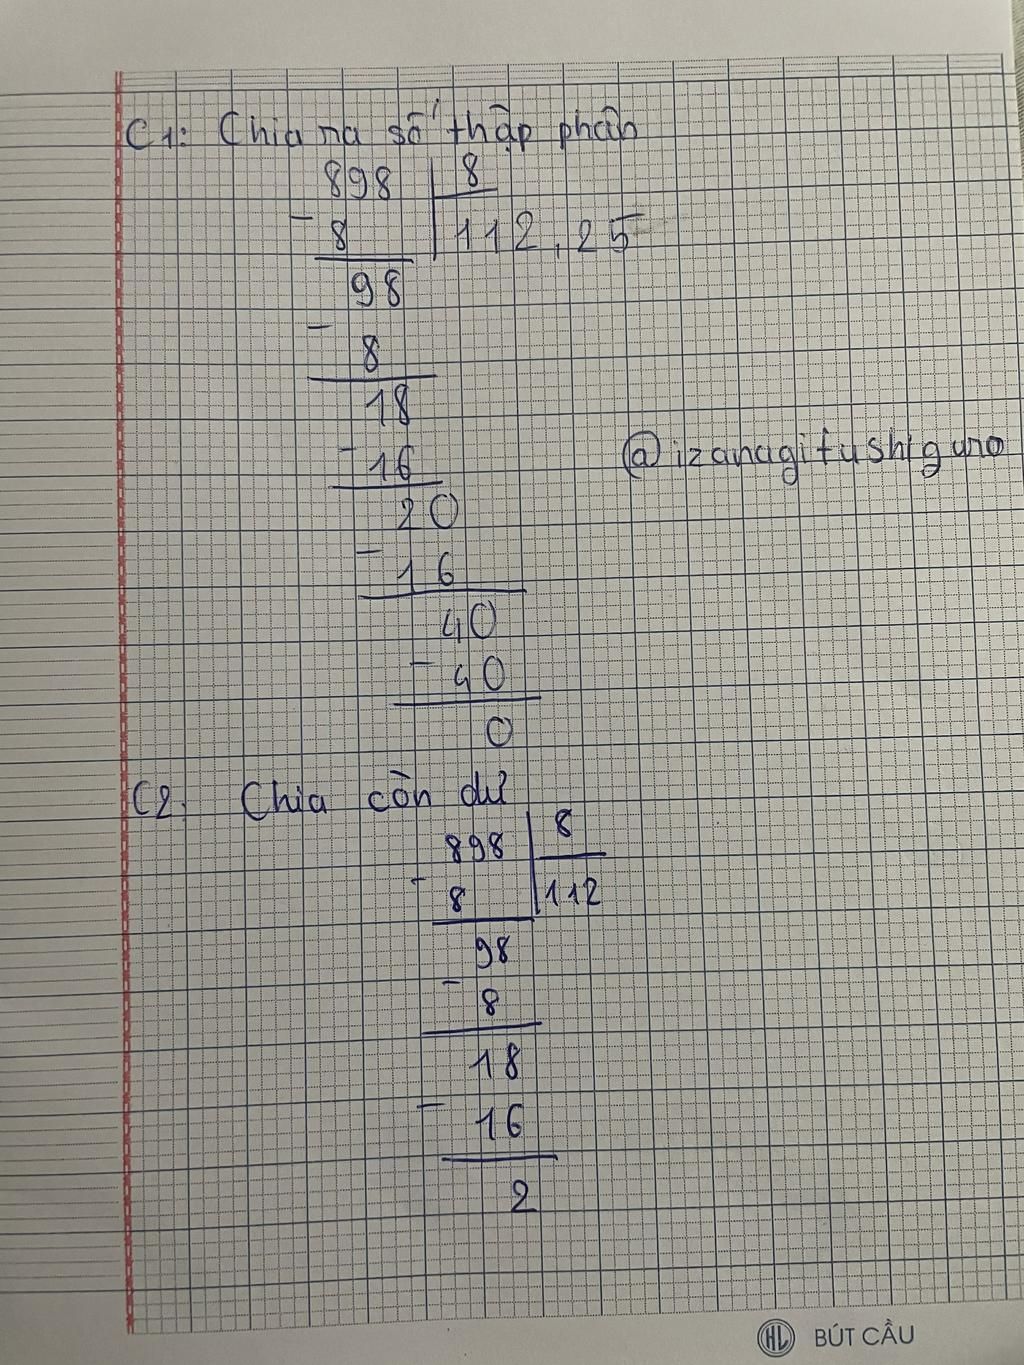 C1: Chia na số thập phân
898 8
- 8 112,25
98
- 8
18
- 16
@izanagifushiguro
20
- 16
40
- 40
0
C2: Chia còn dư
898 8
- 8 112
98
- 8
18
- 16
2
HL BÚT CẦU